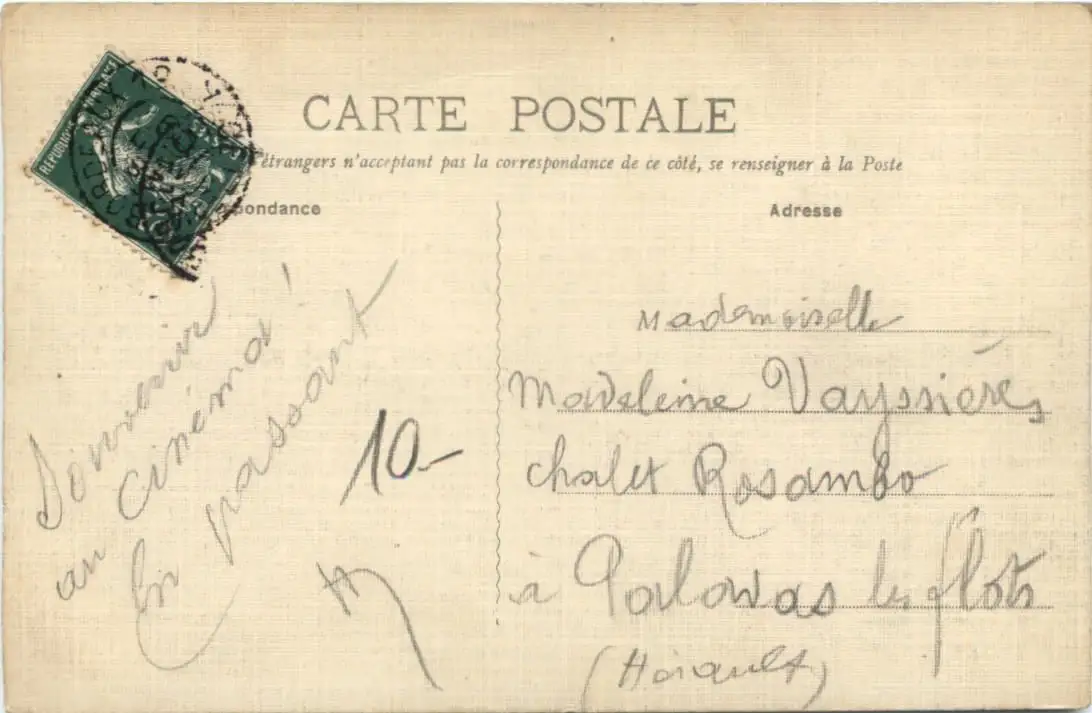 CARTE POSTALE
étrangers n'acceptant pas la correspondance de ce côté, se renseigner à la Poste
pondance
Adresse
RÉPUBLIQUE
BORDEAUX
Souvenir
au cinéma !
En passant
10-
Mademoiselle
Madeleine Vayssières
chalet Rosambo
à Palavas les flots
(Hérault)